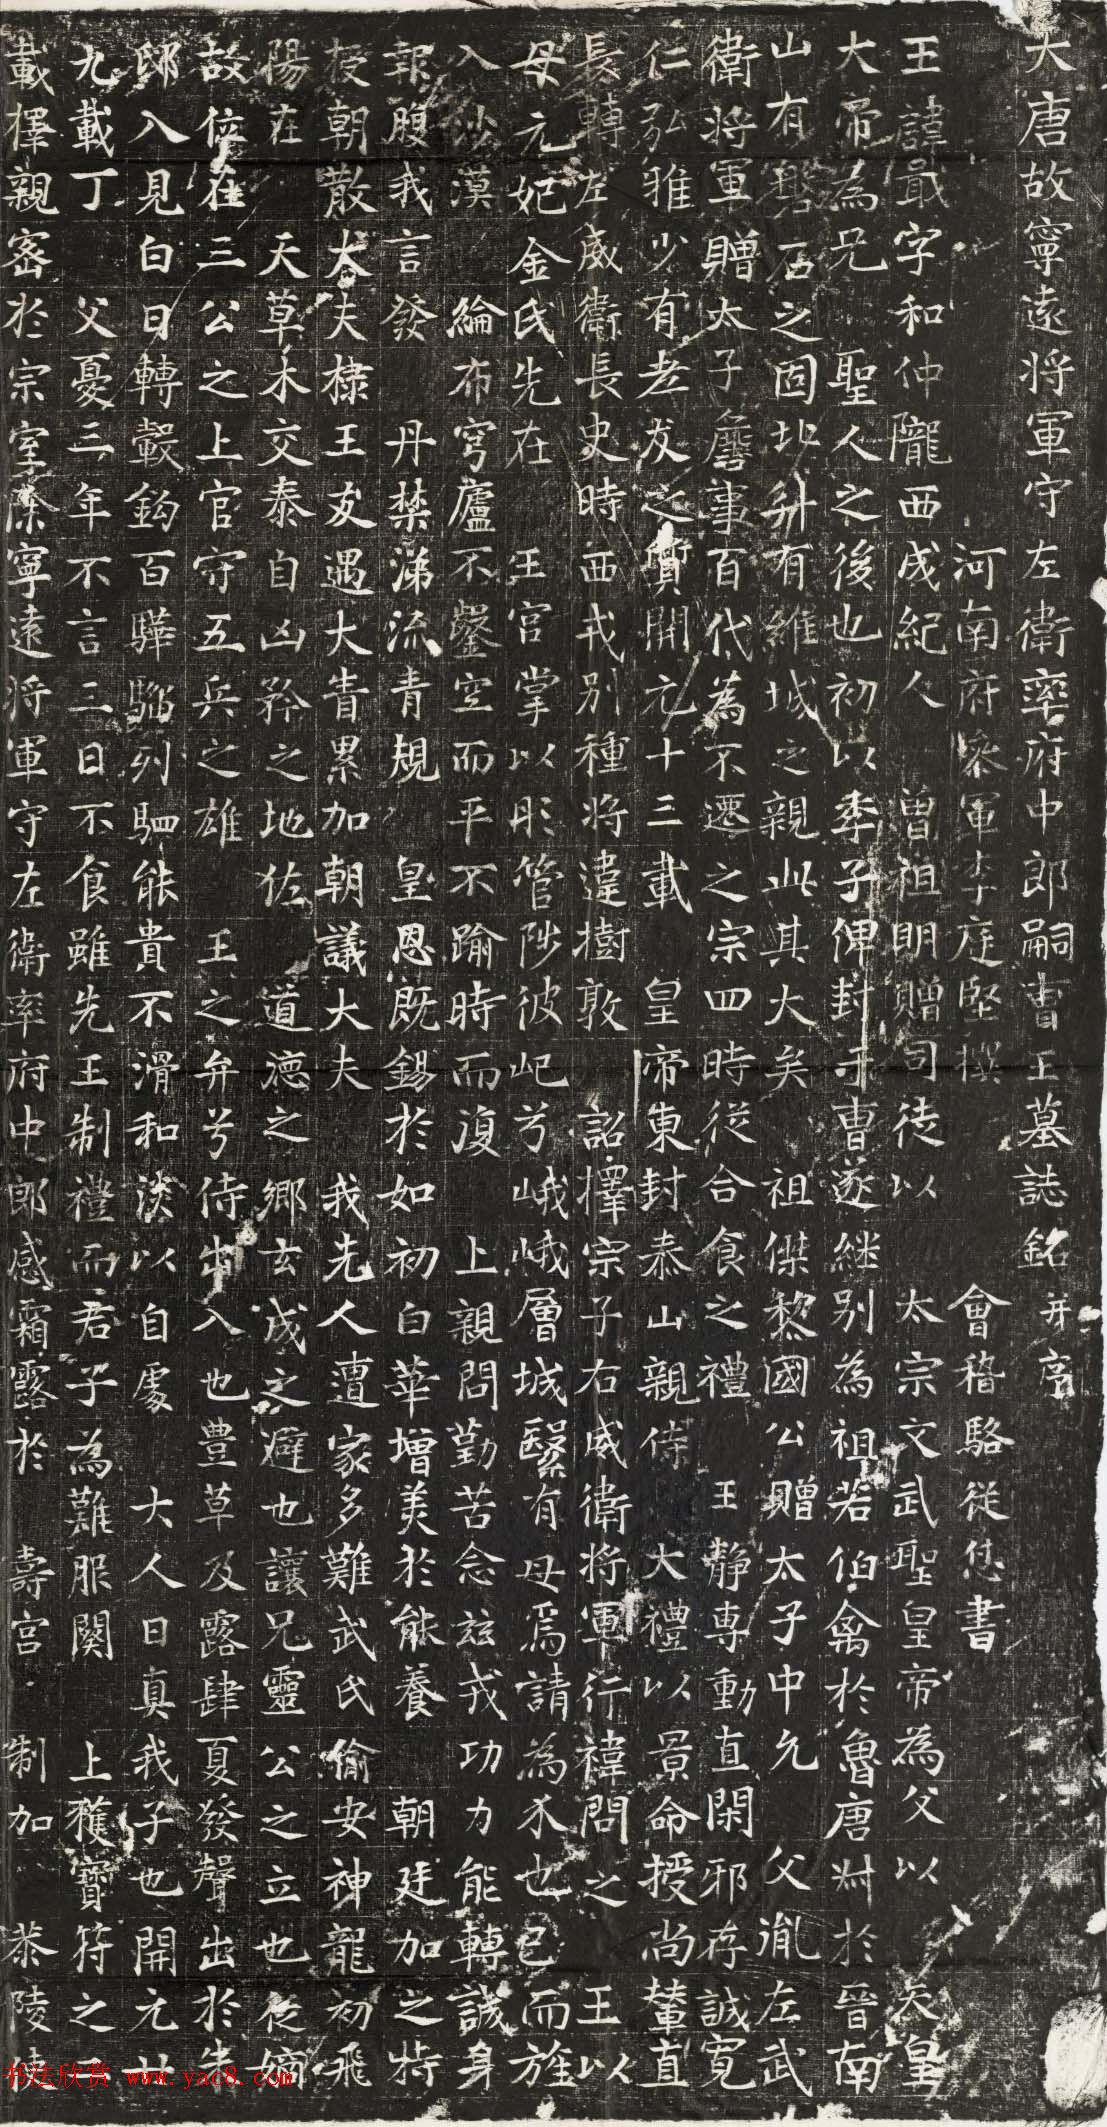 大唐故寧遠將軍守左衛率府中郎嗣曹王墓誌銘并序
河南府參軍李庭堅撰 會稽駱從恁書
王諱戢字和仲隴西成紀人 曾祖明贈司徒以 太宗文武聖皇帝為父以 天皇
大帝為兄 聖人之後也初以季子俾封于曹遂繼别為祖若伯禽於魯唐叔於晉南
山有磐石之固北升有維城之親此其大矣 祖傑黎國公贈太子中允 父胤左武
衛將軍贈太子詹事百代為不遷之宗四時從合食之禮 王静專動直閑邪存誠寬
仁弘雅少有老友之質開元十三載 皇帝東封泰山親侍 大禮以景命授尚輦直
長轉左威衛長史時西戎别種將違樹敦 詔擇宗子右威衛將軍行禕問之 王以
母元妃金氏先在 王宮掌以彤管陟彼屺兮峨峨層城繄有母焉請為介也已而旌
入沙漠 綸布穹廬不鑿空而平不踰時而復 上親問勤苦念兹戎功力能轉誠身
報腹我言發 丹禁涕流青規 皇恩既錫於如初白華增美於能養 朝廷加之特
授朝散大夫棣王友遇大眚累加朝議大夫 我先人遭家多難武氏偷安神龍初飛
陽在 天草木交泰自凶矜之地佐 道德之鄉玄成之避也讓兄靈公之立也從嫡
故位在三公之上官守五兵之雄 王之弁兮侍出入也豊草及露肆夏發聲出於朱
邸入見白日轉轂鈎百驊騮列駟能貴不滑和淡以自處 大人曰真我子也開元廿
九載丁 父憂三年不言三日不食雖先王制禮而君子為難服闋 上獲寶符之二
載擇親密於宗室 寧遠將軍守左衛率府中郎感霜露於 壽宮 制加 恭陵
书法欣赏 www.yac8.com